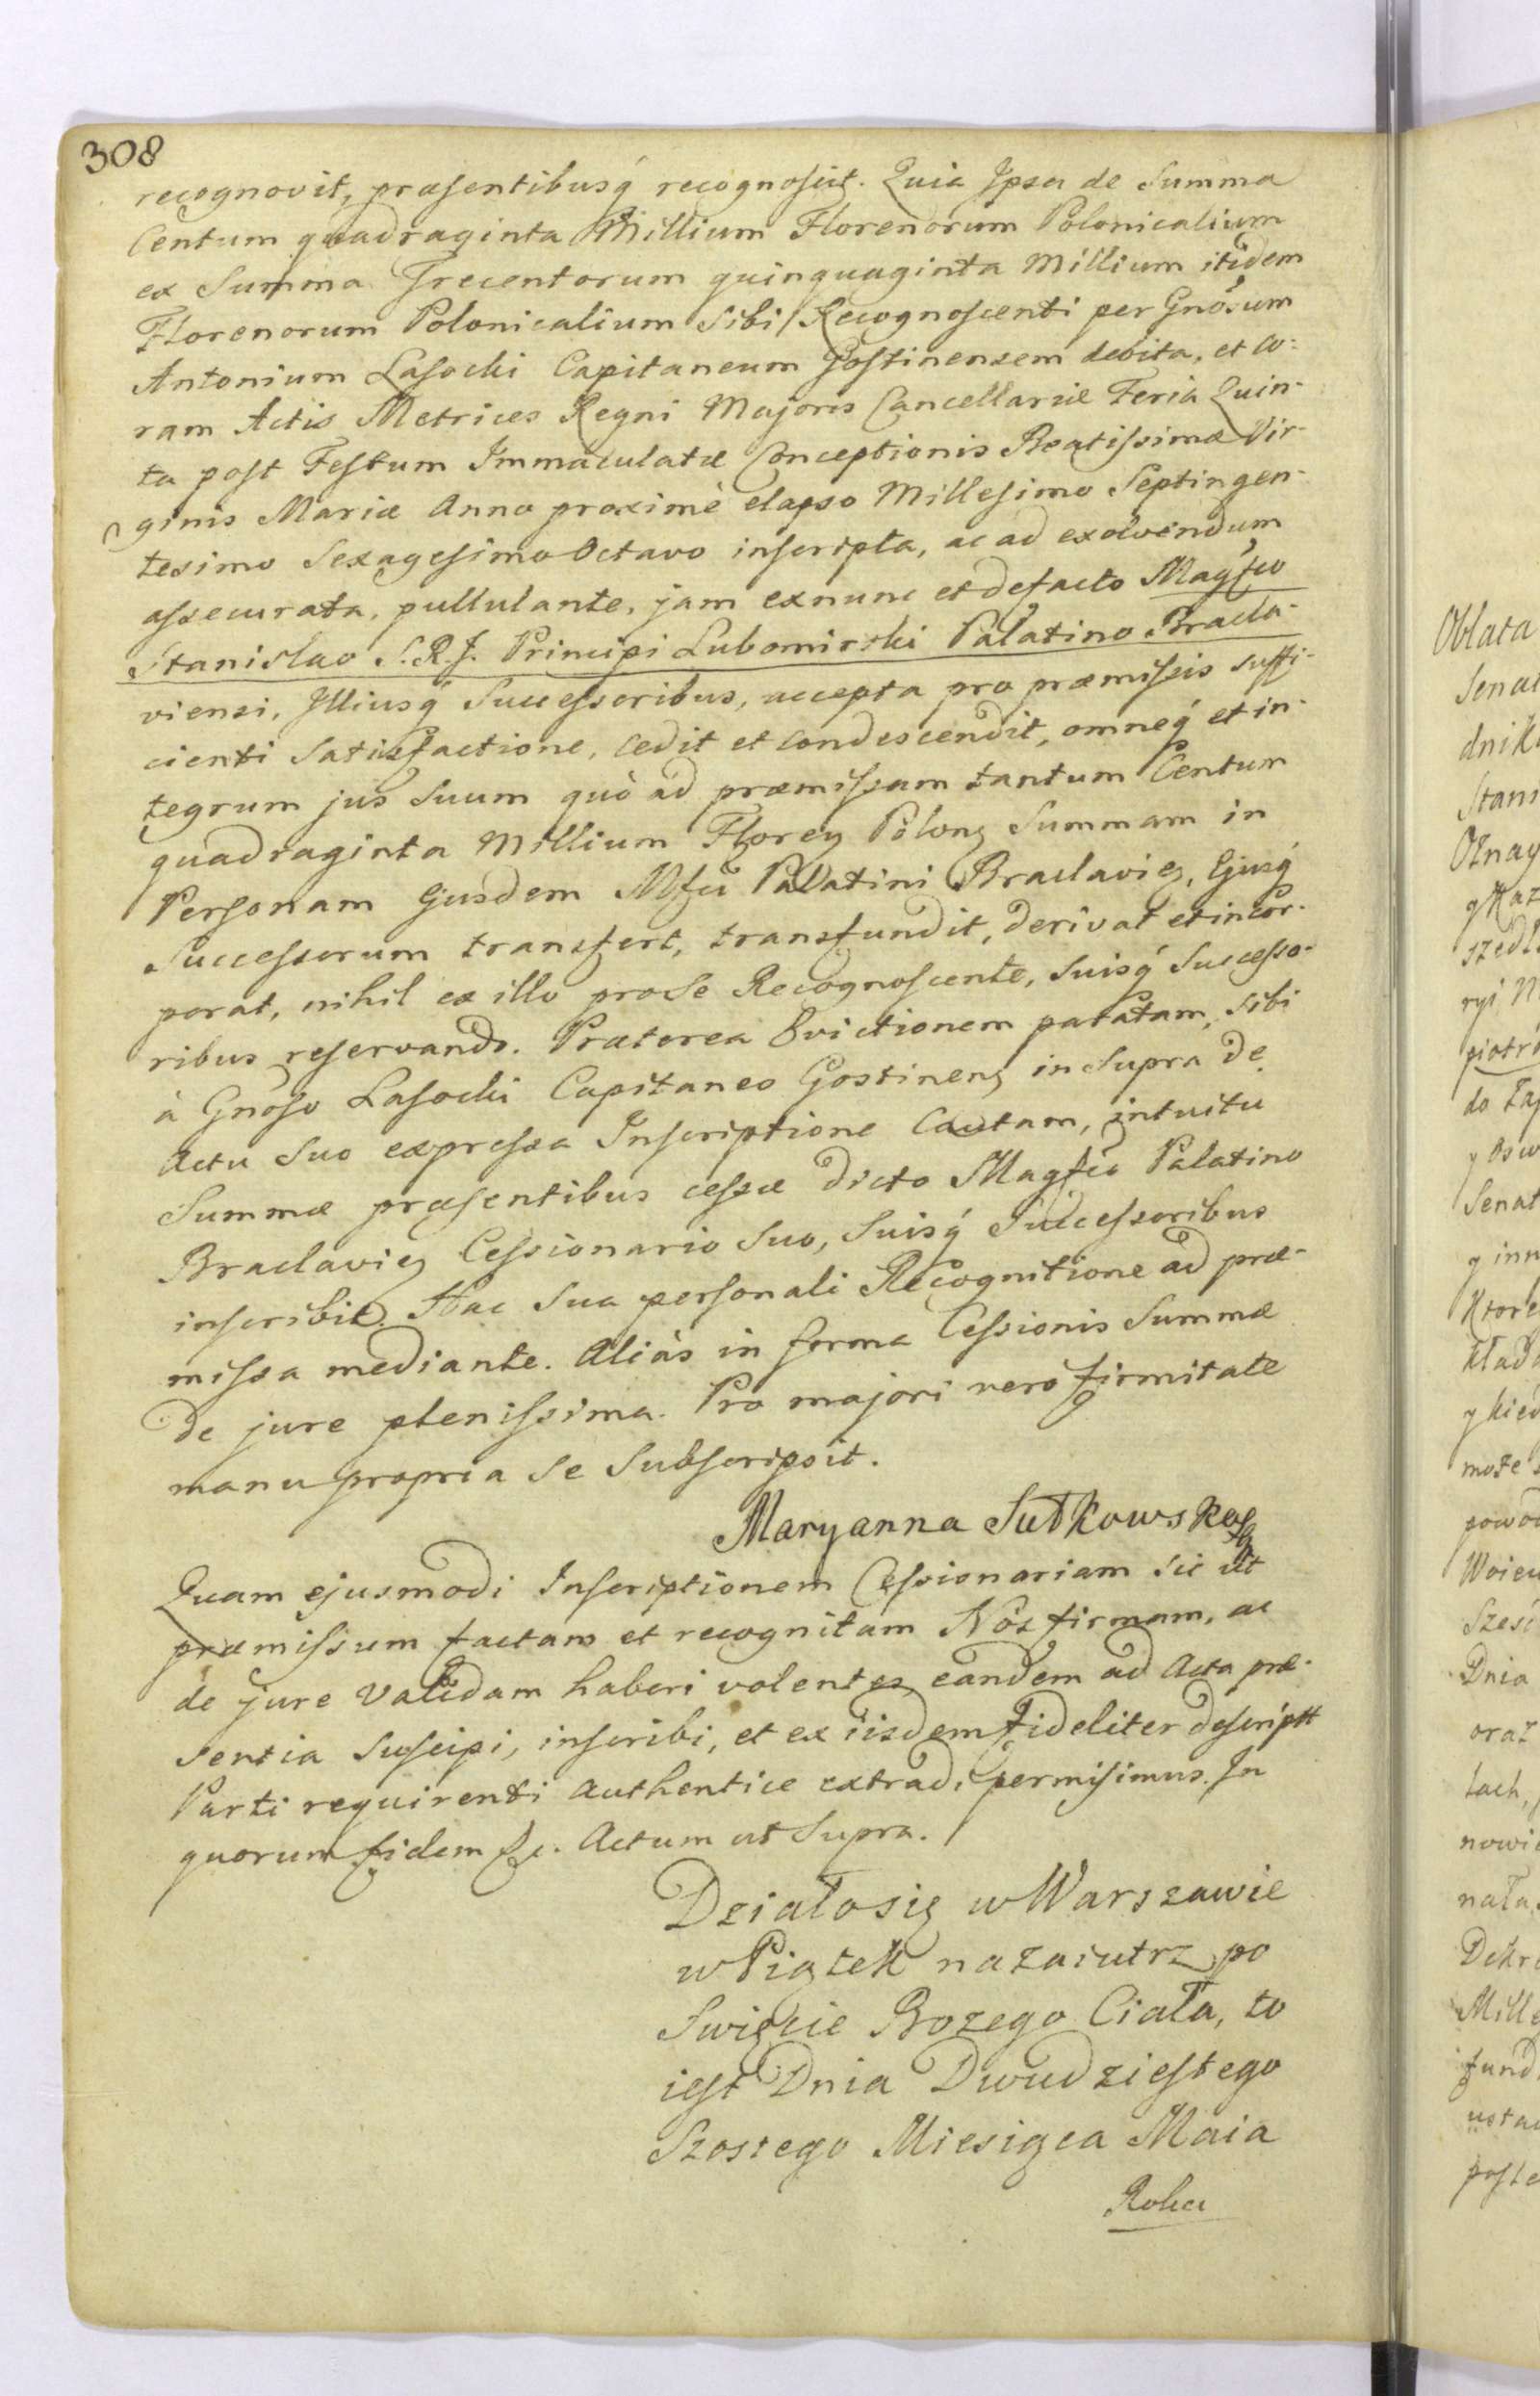 308
recognovit, præsentibusq́ recognoscit. Quia Ipsa de Summa
Centum quadraginta Millium Florenorum Polonicalium
ex Summa Trecentorum quinquaginta Millium itidem
Florenorum Polonicalium Sibi Recognoscenti per Gnosum
Antonium Lasocki Capitaneum Gostinensem debita, et co-
ram Actis Metrices Regni Majoris Cancellariæ Feria Quin-
ta post Festum Immaculatæ Conceptionis Beatissimæ Vir-
ginis Mariæ Anno proximè elapso Millesimo Septingen-
tesimo Sexagesimo Octavo inscripta, ac ad exolvendum
assecurata, pullulante, jam exnunc et defacto Magfco
Stanislao S.R.J. Principi Lubomirski Palatino Bracla-
viensi, Illiusq́ Successoribus, accepta pro præmissis suffi-
cienti Satisfactione, cedit et condescendit, omneq́ et in-
tegrum jus Suum quò ad præmissam tantum Centum
quadraginta Millium Floren Polon Summam in
Personam Ejusdem Mfci Palatini Braclavien, Ejusq́
Successorum transfert, transfundit, derivat et incor-
porat, nihil ex illo pro Se Recognoscente, Suisq́ Successo-
ribus reservando. Præterea Evictionem paratam, Sibi
à Gnoso Lasocki Capitaneo Gostinens in Supra de
Actu Suo expressa Inscriptione Cautam, intuitu
Summæ præsentibus cessæ dicto Magfco Palatino
Braclavien Cessionario Suo, Suisq́ Successoribus
inscribit. Hac Sua personali Recognitione ad præ-
missa mediante. Aliàs in forma Cessionis Summæ
de jure plenissima. Pro majori verò firmitate
manu propria Se Subscripsit.
Maryanna Sułkowska
Quam ejusmodi Inscriptionem Cessionariam Sic ut
præmissum factam et recognitam Nos firmam, ac
de jure Validam haberi volentes, eandem ad Acta præ-
sentia Suscipi, inscribi, et ex iisdem fideliter descriptt
Parti requirenti Authentice extradi permisimus. In
quorum fidem &c. Actum ut Supra.
Działosię w Warszawie
w Piątek nazaiutrz po
Swięcie Bozego Ciała, to
iest Dnia Dwudziestego
Szostego Miesiąca Maia
Roku
Oblata
dnik
Stani
Oznay
do
Senat
y inn
Ktore
może
Woiew
Szesc
Dnia
oraz
tach,
Dekre
Mille
fund